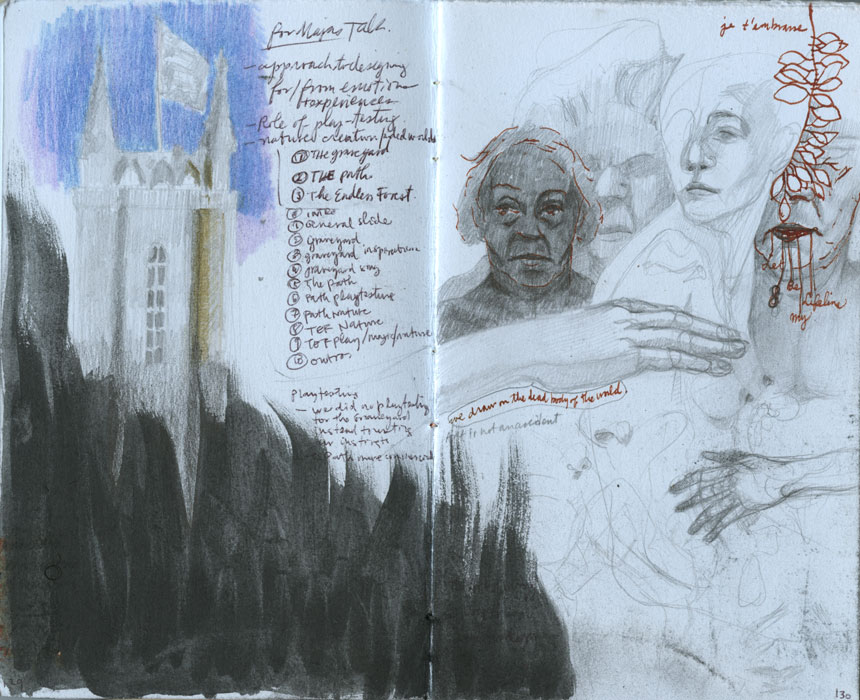 for Majas Talk.
- approach to designing
for/from emotions
+ experiences
- Role of play-testing
- nature creation
① The graveyard
② THE path
③ The Endless Forest.
⓪ intro
① General slide
② graveyard
③ graveyard inspirations
④ graveyard
⑤ The Path
⑥ Path playtesting
⑦ Path Nature
⑧ TEF Nature
⑨ TEF play/magic/nature
⑩ outro.
Playtesting
- we did no playtesting
for the graveyard
instead trusting
our instincts
- Path more
je t'embrasse
Let
Be
my
lifeline
we draw on the dead body of the world.
is not an accident
130